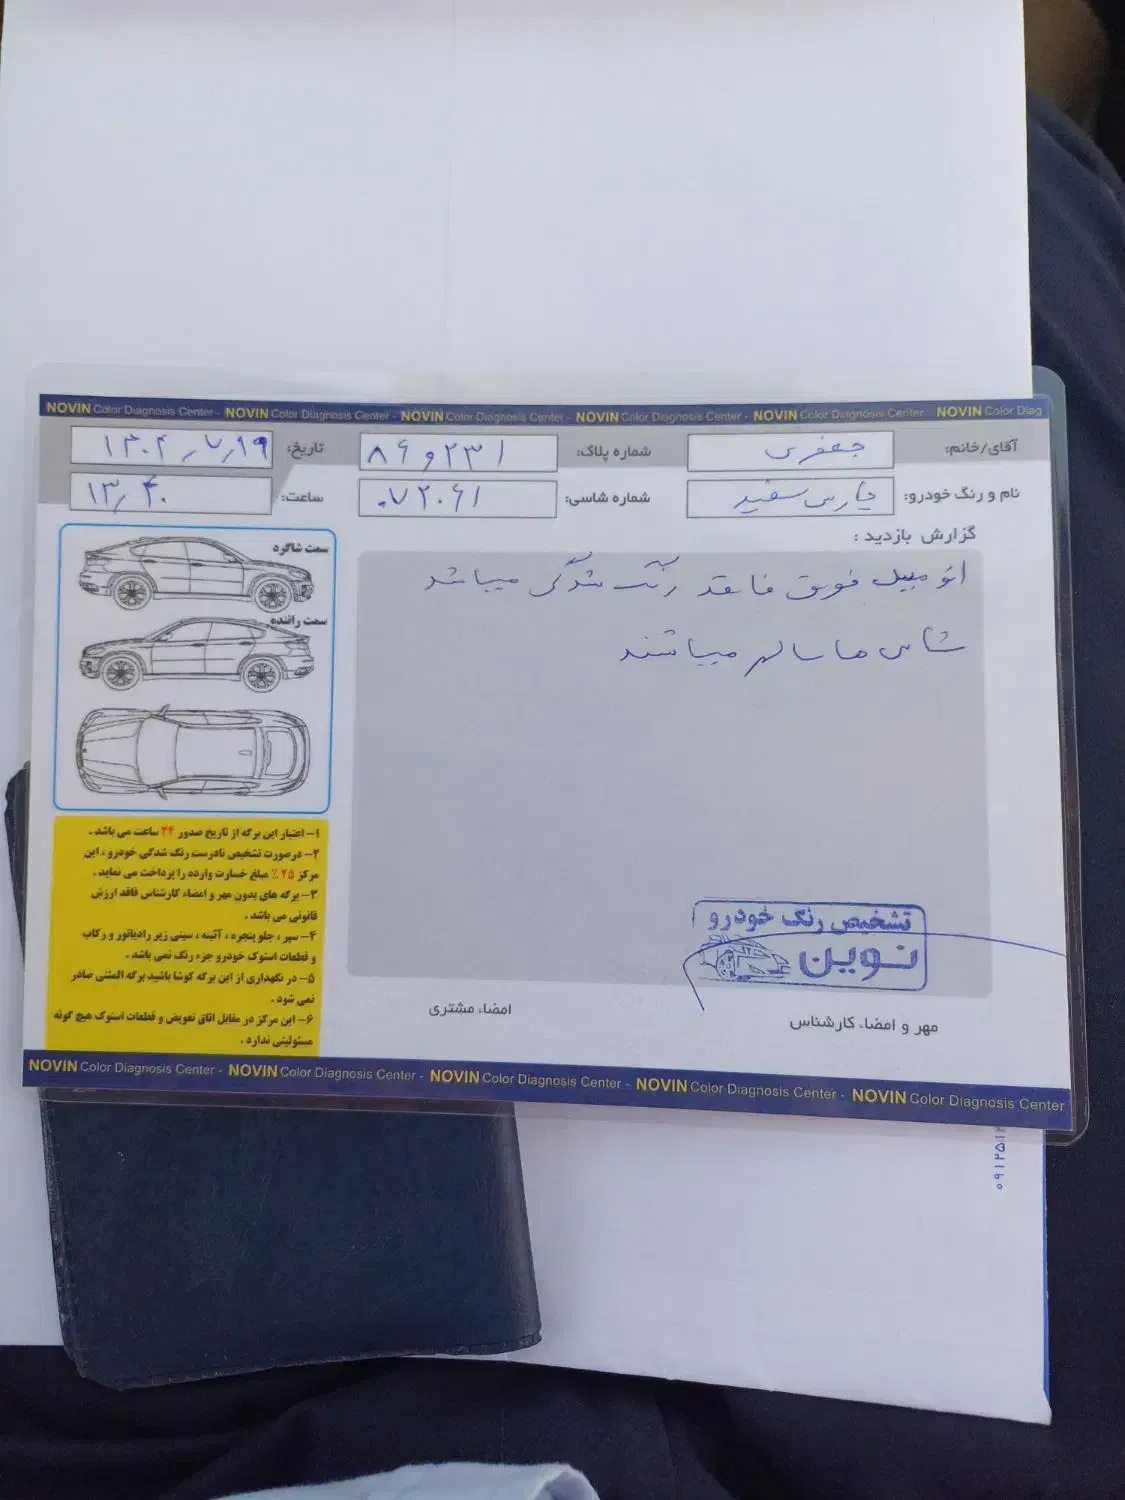 NOVIN Color Diagnosis Center - NOVIN Color Diagnosis Center - NOVIN Color Diagnosis Center - NOVIN Color Diagnosis Center - NOVIN Color Diagnosis Center NOVIN Color Diag
آقای/خانم: جعفری
شماره پلاک: ۸۶و۲۳۱
تاریخ: ۱۴۰۴/۷/۱۹
نام و رنگ خودرو: پارس سفید
شماره شاسی: ۰۷۲۰۶۱
ساعت: ۱۳/۴۰
گزارش بازدید :
اتومبیل فوق فاقد رنگ شدگی میباشد
شاسی ها سالم میباشند
سمت شاگرد
سمت راننده
۱- اعتبار این برگه از تاریخ صدور ۲۴ ساعت می باشد .
۲- درصورت تشخیص نادرست رنگ شدگی خودرو ، این
مرکز ۲۵ ٪ مبلغ خسارت وارده را پرداخت می نماید .
۳- برگه های بدون مهر و امضاء کارشناس فاقد ارزش
قانونی می باشد .
۴- سپر ، جلو پنجره ، آئینه ، سینی زیر رادیاتور و رکاب
و قطعات استوک خودرو جزء رنگ نمی باشد .
۵- در نگهداری از این برگه کوشا باشید برگه المثنی صادر
نمی شود .
۶- این مرکز در مقابل اتاق تعویض و قطعات استوک هیچ گونه
مسئولیتی ندارد .
تشخیص رنگ خودرو
نوین
مهر و امضاء کارشناس
امضاء مشتری
NOVIN Color Diagnosis Center - NOVIN Color Diagnosis Center - NOVIN Color Diagnosis Center - NOVIN Color Diagnosis Center - NOVIN Color Diagnosis Center